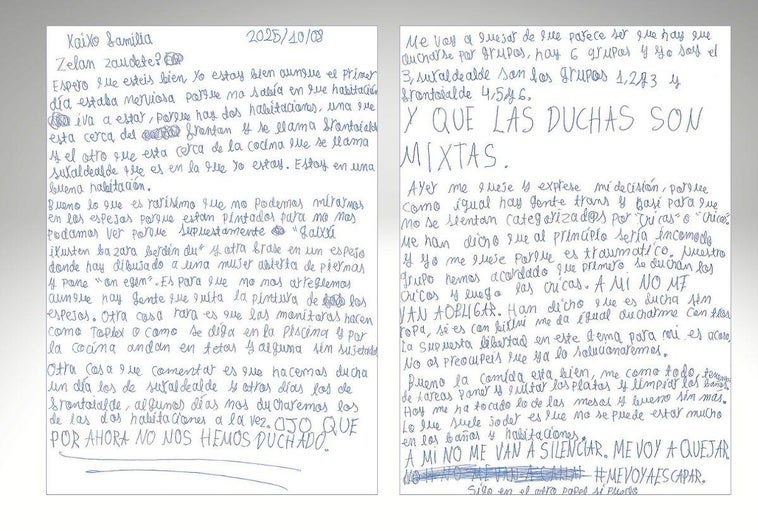 Kaixo familia 2025/10/09
Zelan zaudete?
Espero que esteis bien yo estoy bien aunque el primer
día estaba nerviosa porque no sabía en que habitación
iva a estar, porque hay dos habitaciones, una que
esta cerca del frontan y se llama frontoialde
y el otro que esta cerca de la cocina que se llama
sukaldealde que es en la que yo estoy. Estoy en una
buena habitación.
Bueno lo que es rarisimo que no podemos mirarnos
en los espejos porque estan pintados para no nos
podamos ver porque supuestamente "Gaizki
ikusten bazara berdin du" y otra frase en un espejo
donde hay dibujado a una mujer abierta de piernas
y pone "on egin". Es para que no mos arreglemos
aunque hay gente que quita la pintura de los
espejos. Otra cosa rara es que las monitoras hacen
como Toplex o como se diga en la piscina y por
la cocina andan en tetas y alguna sin sujetador
Otra cosa que comentar es que hacemos ducha
un día los de sukaldealde y otros días los de
frontoialde, algunos días nos ducharemos los
de las dos habitaciones a la vez. OJO QUE
POR AHORA NO NOS HEMOS DUCHADO.
Me voy a quejar de que parece ser que hay que
ducharse por grupos, hay 6 grupos y yo soy el
3, sukaldealde son los grupos 1,2y3 y
frontoialde 4,5y6.
Y QUE LAS DUCHAS SON
MIXTAS.
Ayer me queje y exprese mi decisión, porque
como igual hay gente trans y así para que
no se sientan categorizados por "chicas" o "chicos"
me han dicho que al principio sería incomodo
y yo me queje porque es traumatico. Nuestro
grupo hemos acordado que primero se duchan los
chicos y luego las chicas. A MI NO ME
VAN A OBLIGAR. Han dicho que es ducha sin
ropa, si es con bikini me da igual ducharme con tios
La supuesta libertad en este tema para mi es acoso.
No os preocupeis que ya lo solucionaremos.
Bueno la comida esta bien, me como todo, tenemos
de tareas poner y quitar los platos y limpiar los baños.
Hoy me ha tocado lo de las mesas y bueno sin mas.
Lo que suele joder es que no se puede estar mucho
en los baños y habitaciones.
A MI NO ME VAN A SILENCIAR. ME VOY A QUEJAR.
#MEVOYAESCAPAR.
Sigo en el otro papel si puedo